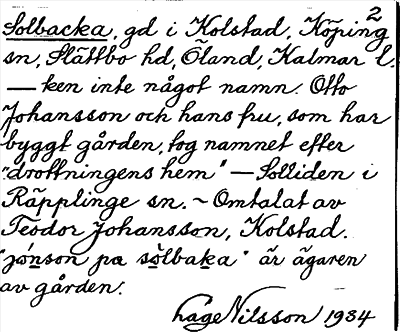 2
Solbacka, gd i Kolstad, Köping
sn, Slättbo hd, Öland, Kalmar l.
— ken inte något namn. Otto
Johansson och hans fru, som har
byggt gården, tog namnet efter
"drottningens hem" — Solliden i
Räpplinge sn. ~ Omtalat av
Teodor Johansson, Kolstad.
"jónson pa sòlbaka" är ägaren
av gården.
Åage Nilsson 1934